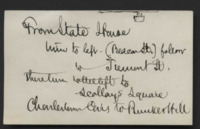 From State House
turn to left - (Beacon St.) follow
to Tremont St.
there turn to the left to
Scollays Square
Charlestown Cars to Bunker Hill